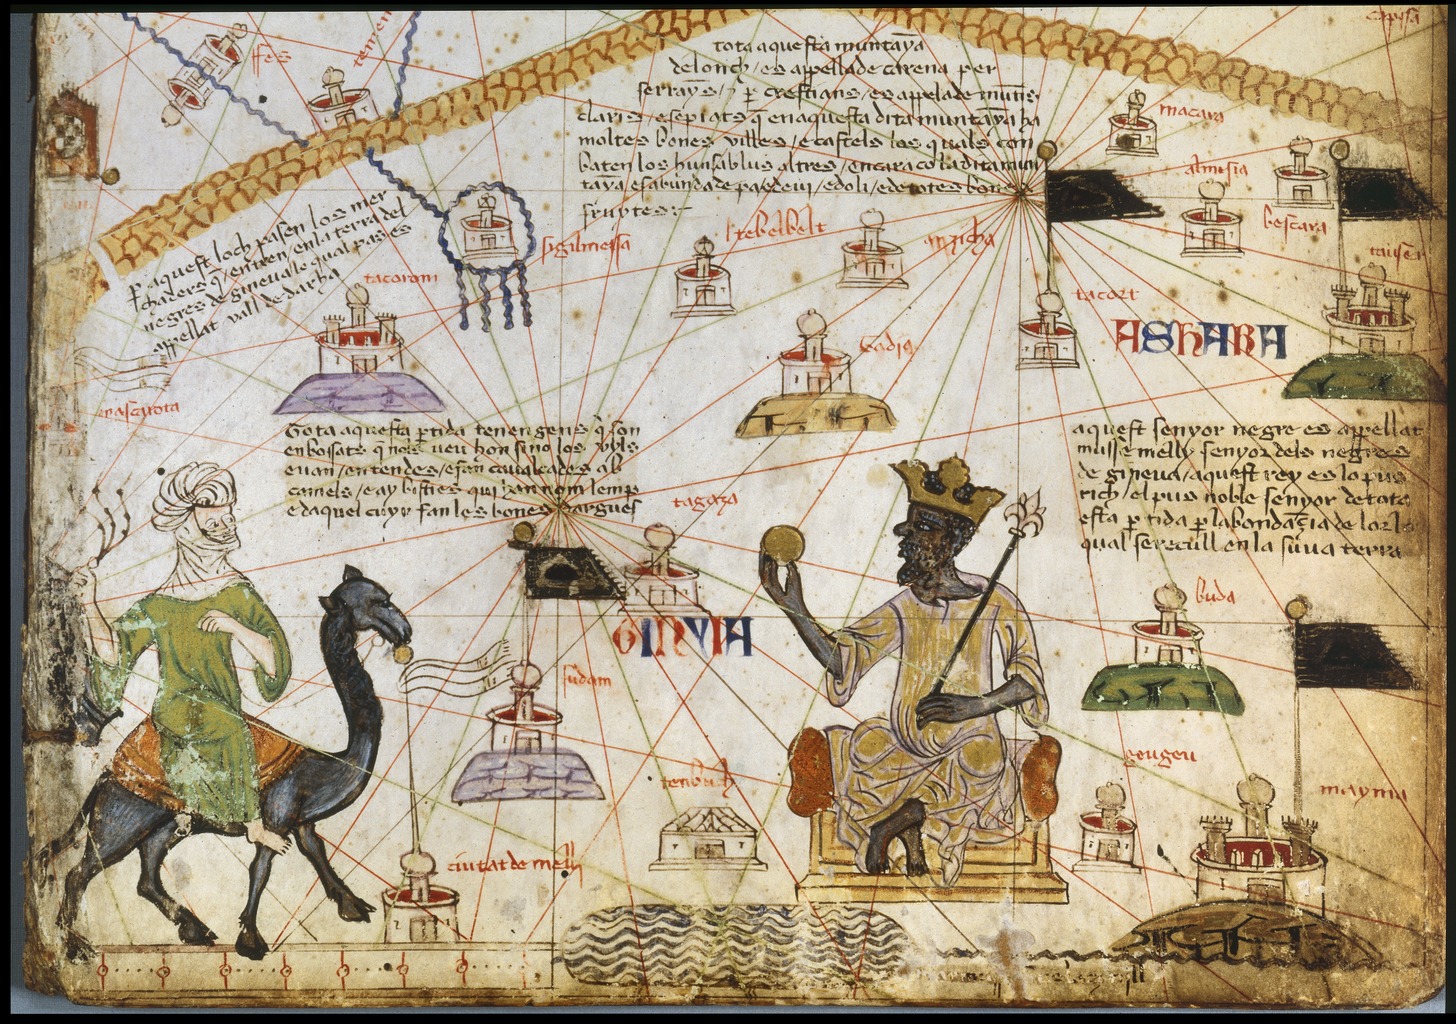 fes
tota aquesta muntaya
delonch / es appellade carena per
serrayns / ⁊ p crestians / es appelade munts
claris / e sepiats q en aquesta dita muntaya ha
moltes bones villes / e castels los quals con
baten los huns ab los altres / encara co la dita mun
taya es abunda de pa e de vi / e doli / e de totes bones
fruytes :~
macara
almisia
bescara
p aquest loch pasen los mer
chaders q entren en la terra del
negres de gineva lo qual pas es
appellat vall de darha
tacorom
sigilmessa
tebelbelt
anzicha
tacort
ASHARA
Tota aquesta ptida tenen gens q son
enbossats q nols veu hom sino los uyls
e van / en tendes / e fan cavalcades ab
camels / e ay bisties qui han nom lemp
e daquel cuyr fan les bones dargues
aquest senyor negre es appellat
musse melly senyor dels negres
de gineva / aquest rey es lo pus
rich / el pus noble senyor de tota
esta ptida p labondacia de lor lo
qual se recull en la suua terra
tagaza
GINYIA
sudam
buda
geugeu
mayma
tenbuch
ciutat de melly